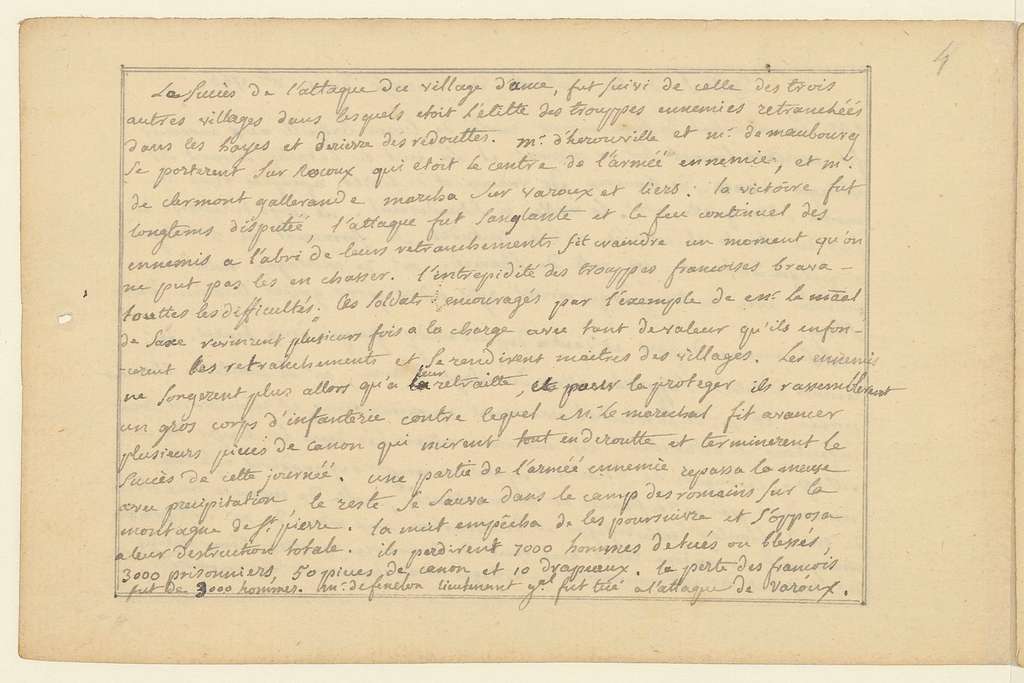 4
Le succès de l'attaque du village d'ance, fut suivi de celle des trois
autres villages dans lesquels etoit l'elitte des trouppes ennemies retranchéés
dans les hayes et derierre des redouttes. mr. d'herouville et mr. de maubourg
se porterent sur Rocoux qui etoit le centre de l'arméé ennemie, et mr.
de clermont gallerande marcha sur varoux et liers: la victoire fut
longtems disputéé, l'attaque fut sanglante et le feu continuel des
ennemis a l'abri de leurs retranchements fit craindre un moment qu'on
ne put pas les en chasser. l'intrepidité des trouppes francoises brava
touttes les difficultés. Ces soldats encouragés par l'exemple de mr. le maal
de Saxe revinrent plusieurs fois a la charge avec tant de valeur qu'ils enfon-
-cerent les retranchements et se rendirent maitres des villages. Les ennemis
ne songerent plus allors qu'a leur retraitte, et pour la proteger ils rassemblerent
un gros corps d'infanterie contre lequel Mr. le marechal fit avancer
plusieurs pieces de canon qui mirent tout en deroutte et terminerent le
succès de cette journéé. une partie de l'arméé ennemie repassa la meuse
avec precipitation le reste se sauva dans le camp des romains sur la
montagne de St. pierre. la nuit empêcha de les poursuivre et s'opposa
a leur destruction totale. ils perdirent 7000 hommes de tués ou blessés,
3000 prisonniers, 50 pieces de canon et 10 drapeaux. la perte des francois
fut de 3000 hommes. mr. de fenelon lieutenant gal. fut tué a l'attaque de varoux.